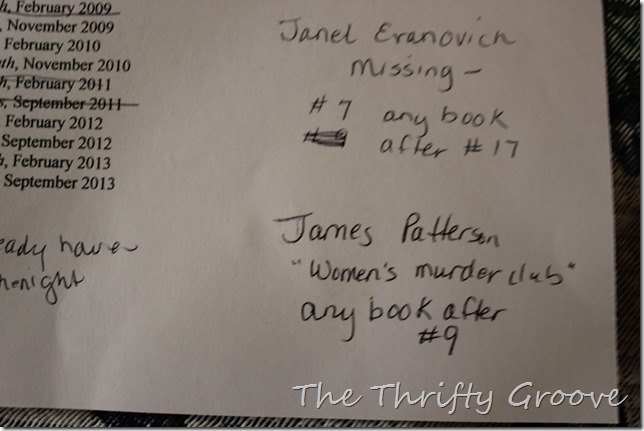 h, February 2009
, November 2009
February 2010
th, November 2010
h, February 2011
s, September 2011
February 2012
September 2012
h, February 2013
September 2013
eady have
henight
Janel Eranovich
missing -
# 7 any book
#9 after #17
James Patterson
"Women's murder club"
any book after
#9
The Thrifty Groove